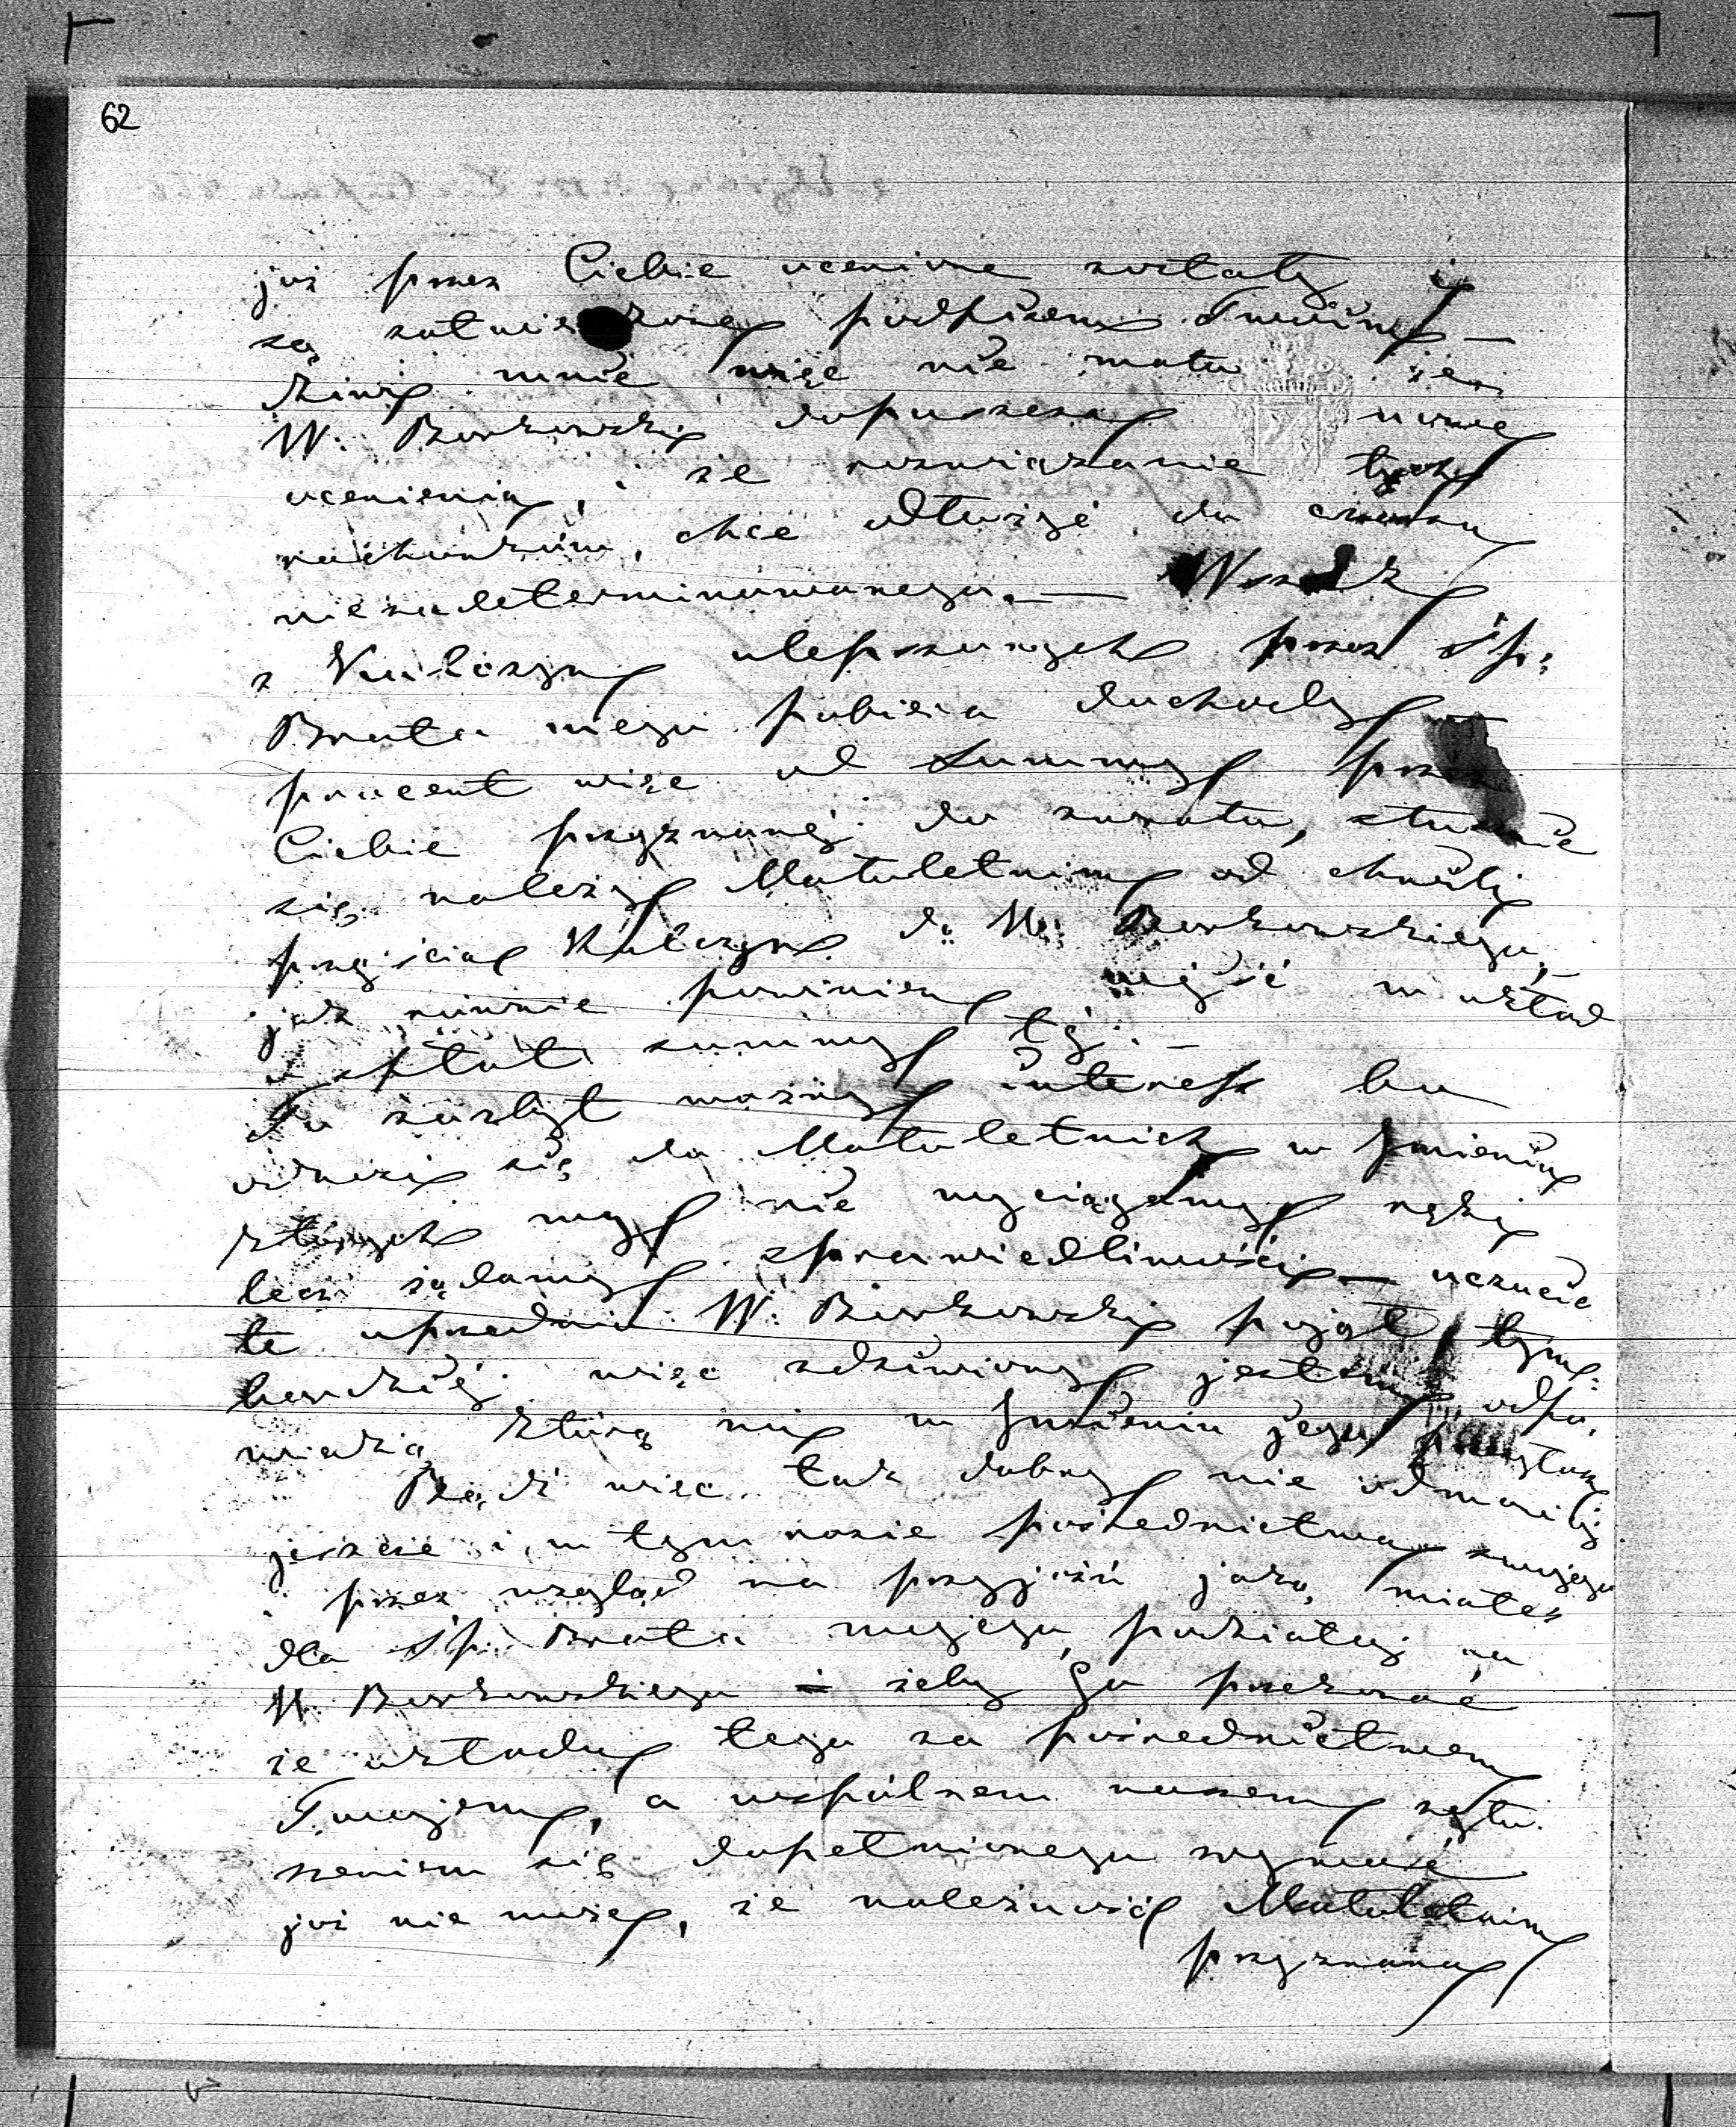 62
już przez Ciebie ocenione zostały i
są zatwierdzone podpisem Twoim —
dziwi mnie więc nie mało że
W. Borkowski dopuszcza nowe
ocenienia, i że rozwiązanie tych
rachunków, chce odłożyć do czasu
niezadeterminowanego. — Wszak
z Kulczyn ulepszonych przez śp:
Brata mego pobiera dochody —
procent więc od Summy przez
Ciebie przyznanéj do zwrotu, słusznie
się należy Małoletnim od chwili
przejścia Kulczyn do W. Borkowskiego, —
jak równie powinien wejść w układ
spłat summy téj. —
Jo zbyt ważny interess bo
odnosi się do Małoletnich w Jmieniu
których my nie wyciągamy ręki
lecz żądamy sprawiedliwości — uczucie
te uprzednio W. Borkowski pojął tym
bardziéj więc zdziwiony jestem odpo,
wiedzią którą mi w Jmieniu jego
Bądź więc tak dobry nie odmawiaj
jeszcze i w tym razie pośrednictwa swojego
i przez wzgląd na przyjaźń jaką miałeś
dla śp. Brata mojego, podziałaj na
W. Borkowskiego i żeby Go przekonać
że układu tego za pośrednictwem
Twojem, a wspólnem naszem
szeniem się dopełnionego wymazać
już nie może, że należność Małoletnim
przyznana